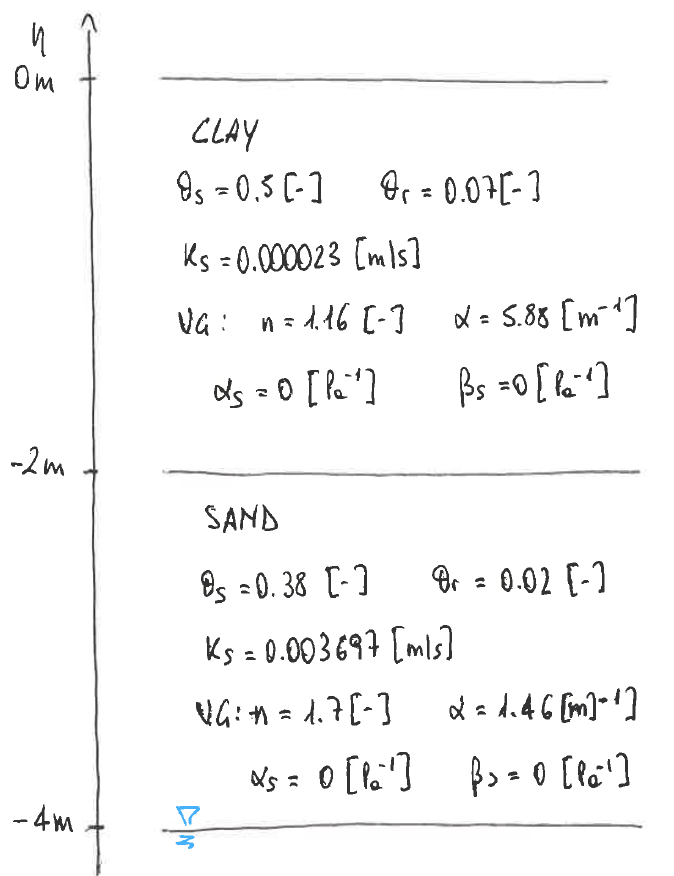 η
0m
CLAY
θs = 0.5 [-] θr = 0.07 [-]
Ks = 0.000023 [m/s]
VG: n = 1.16 [-] α = 5.88 [m⁻¹]
αs = 0 [Pa⁻¹] βs = 0 [Pa⁻¹]
-2m
SAND
θs = 0.38 [-] θr = 0.02 [-]
Ks = 0.003697 [m/s]
VG: n = 1.7 [-] α = 1.46 [m]⁻¹]
αs = 0 [Pa⁻¹] βs = 0 [Pa⁻¹]
-4m